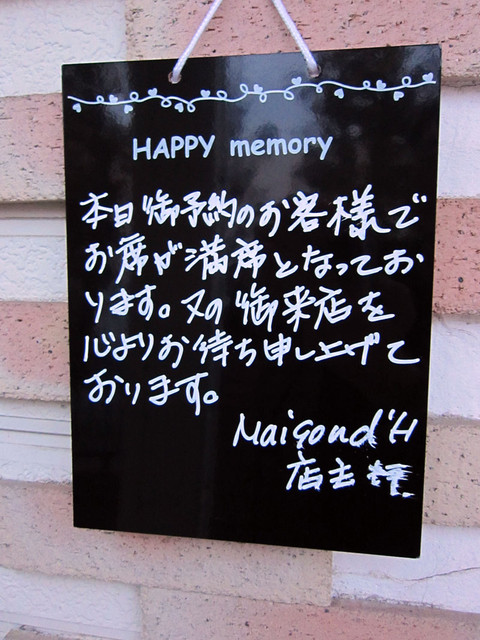 HAPPY memory
本日御予約のお客様で
お席が満席となってお
ります。又の御来店を
心よりお待ち申し上げて
おります。
Maisond'H
店主 輝